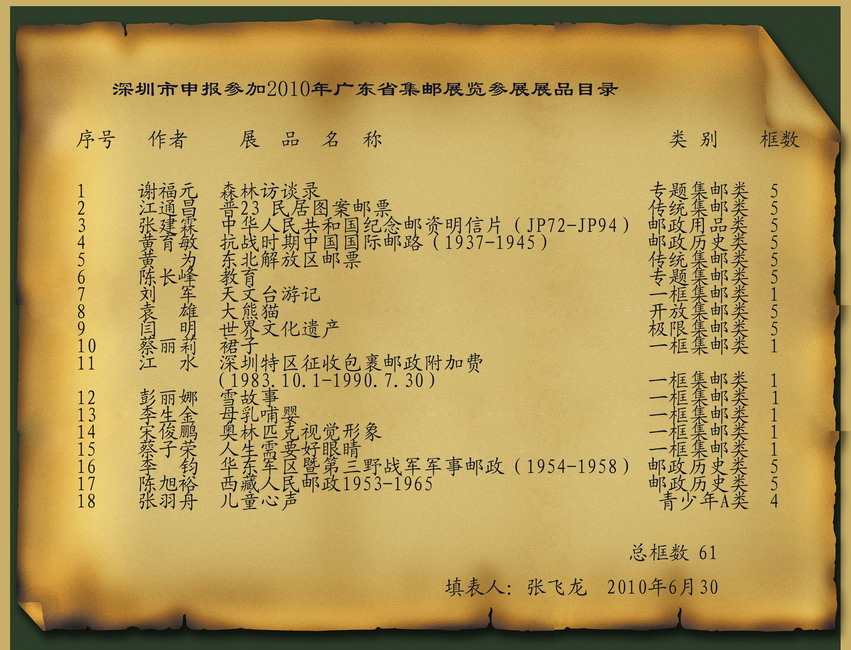 深圳市申报参加2010年广东省集邮展览参展展品目录
序号 作者 展 品 名 称 类 别 框数
1 谢福元 森林访谈录 专题集邮类 5
2 江通昌 普23 民居图案邮票 传统集邮类 5
3 张建霖 中华人民共和国纪念邮资明信片（JP72-JP94） 邮政用品类 5
4 黄育敏 抗战时期中国国际邮路（1937-1945） 邮政历史类 5
5 黄 为 东北解放区邮票 传统集邮类 5
6 陈长峰 教育 专题集邮类 5
7 刘 军 天文台游记 一框集邮类 1
8 袁 雄 大熊猫 开放集邮类 5
9 闫 明 世界文化遗产 极限集邮类 5
10 蔡丽莉 裙子 一框集邮类 1
11 江 水 深圳特区征收包裹邮政附加费
(1983.10.1-1990.7.30) 一框集邮类 1
12 彭丽娜 雪故事 一框集邮类 1
13 李生金 母乳哺婴 一框集邮类 1
14 宋俊鹏 奥林匹克视觉形象 一框集邮类 1
15 蔡子荣 人生需要好眼睛 一框集邮类 1
16 李 钧 华东军区暨第三野战军军事邮政（1954-1958） 邮政历史类 5
17 陈旭裕 西藏人民邮政1953-1965 邮政历史类 5
18 张羽舟 儿童心声 青少年A类 4
总框数 61
填表人：张飞龙 2010年6月30